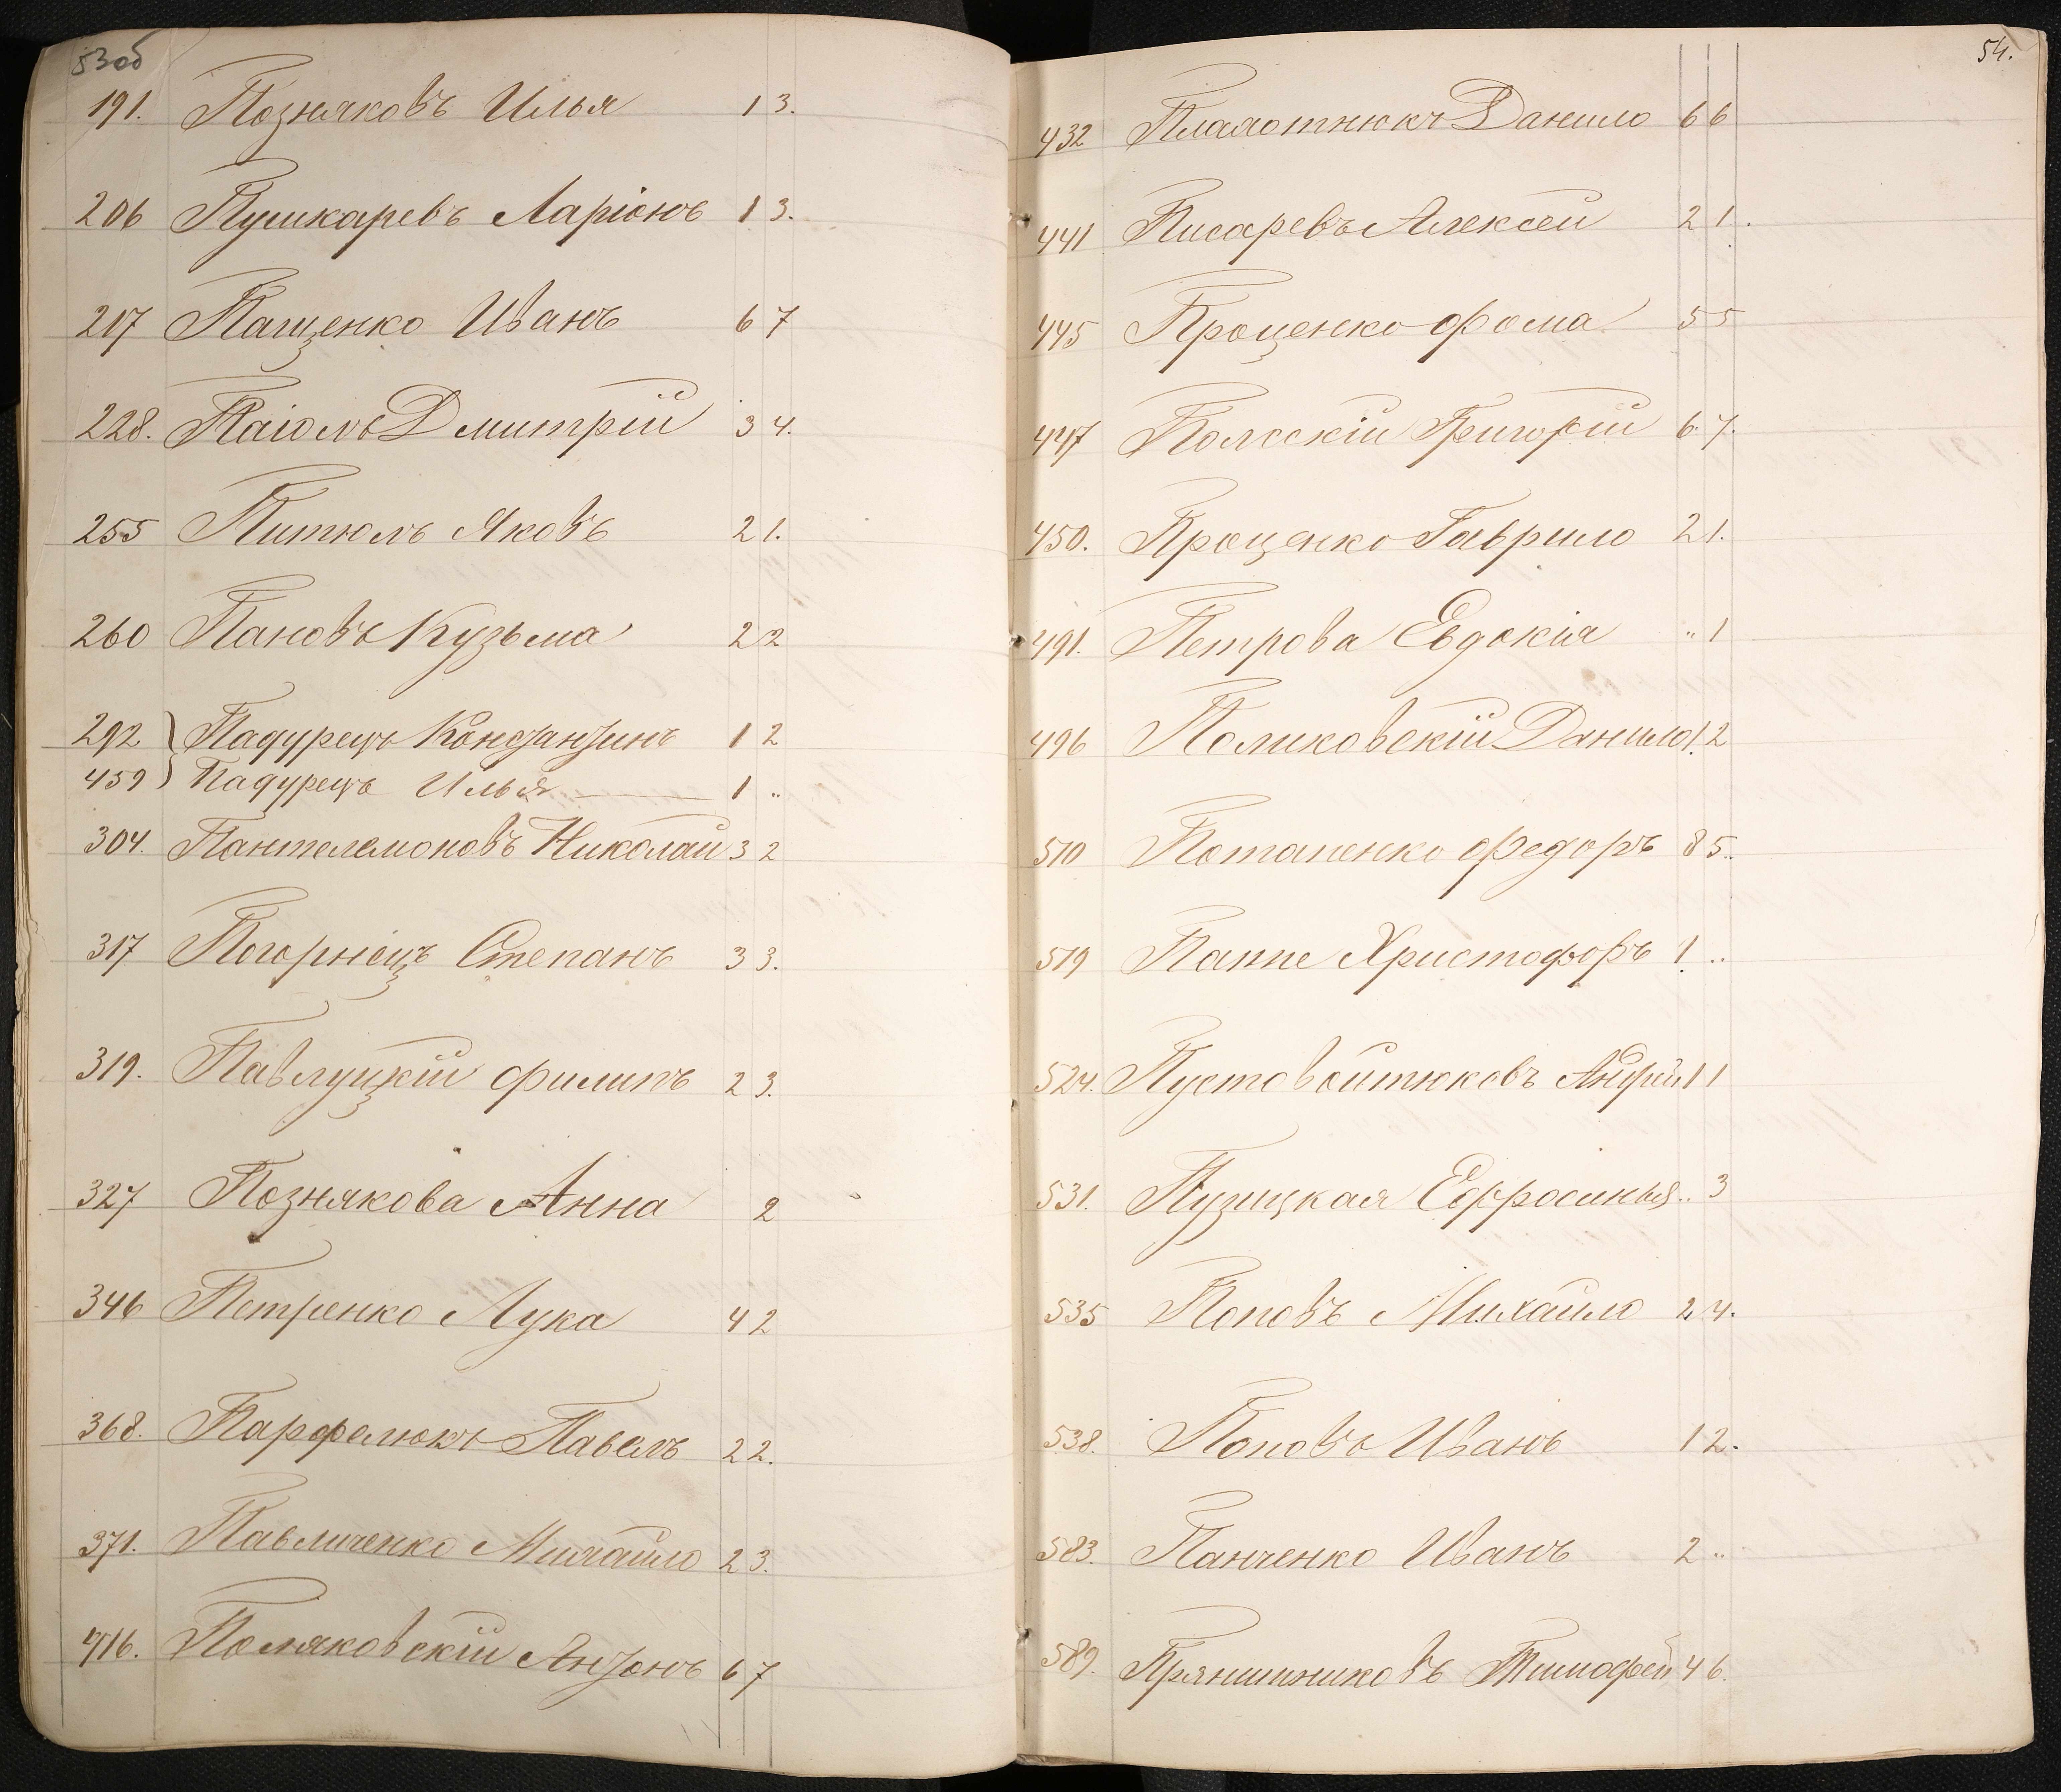 53об
191. Позняковъ Илья 1 3.
206 Пушкаревъ Ларіонъ 1 3.
217 Пащенко Иванъ 6 7
228. Паіолъ Дмитрій 3 4.
255 Питюлъ Яковъ 2 1.
260 Пановъ Кузьма 2 2
292 Падурецъ Константинъ 1 2
459 Падурецъ Илья 1 "
304. Пантелемоновъ Николай 3 2
317 Погорнецъ Степанъ 3 3.
319. Павлуцкій Филипъ 2 3.
327 Познякова Анна 2
346 Петренко Лука 4 2
368. Парфелюкъ Павелъ 2 2.
371. Павличенко Михайло 2 3.
416. Поляковскій Антонъ 6 7
54.
432 Данило 6 6
441 Писаревъ Алексей 2 1.
445 Проценко Фома 5 5
447 Полсскій Григорій 6 7.
450. Проценко Гаврило 2 1.
491. Петрова Евдокія " 1
496 Поликовскій Данило 1 2
510 Потапенко Федоръ 8 5.
519 Паппе Христофоръ 1 "
524. Пустовойтюковъ Андрей 1 1
531. Пузицкая Ефросинья " 3
535 Поповъ Михайло 2 4.
538. Поповъ Иванъ 1 2.
583. Панченко Иванъ 2 "
589. Прянишниковъ Тимофей 4 6.